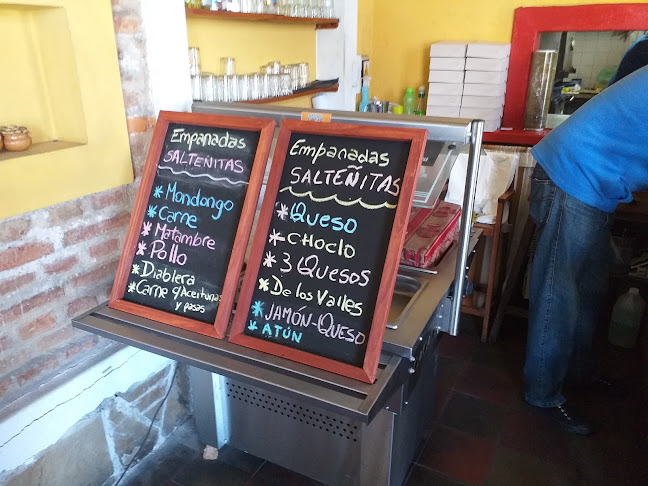 Empanadas
SALTEÑITAS
* Mondongo
* Carne
* Matambre
* Pollo
* Diablera
* Carne y Aceitunas
y pasas
Empanadas
SALTEÑITAS
* Queso
* CHOCLO
* 3 Quesos
* De los Valles
* JAMÓN-Queso
* ATÚN